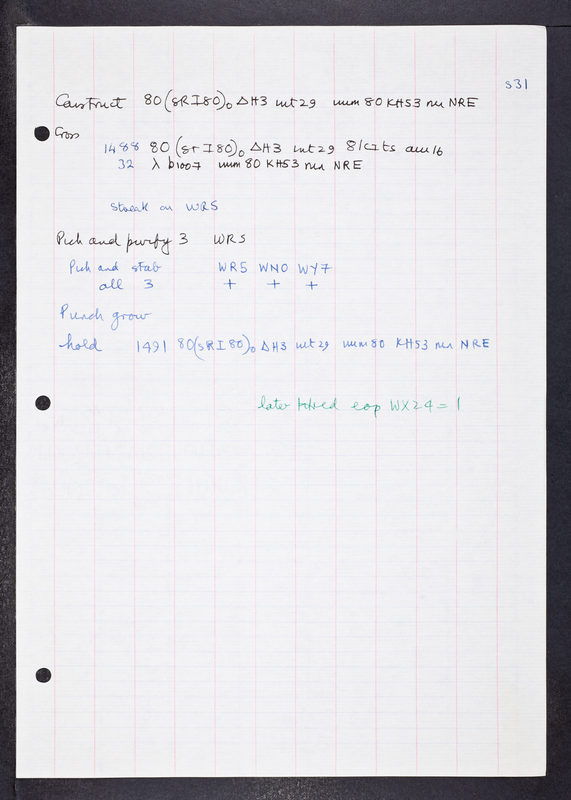 S31
Construct 80(sRI80)₀ ΔH3 int29 imm80 KH53 nin NRE
Cross
1488 80(srI80)₀ ΔH3 int29 8/cIts am16
32 λ b1007 imm80 KH53 nin NRE
Streak on WR5
Pick and purify 3 WR5
Pick and stab WR5 WN0 WY7
all 3 + + +
Punch grow
hold 1491 80(sRI80)₀ ΔH3 int29 imm80 KH53 nin NRE
later eop WX24 = 1